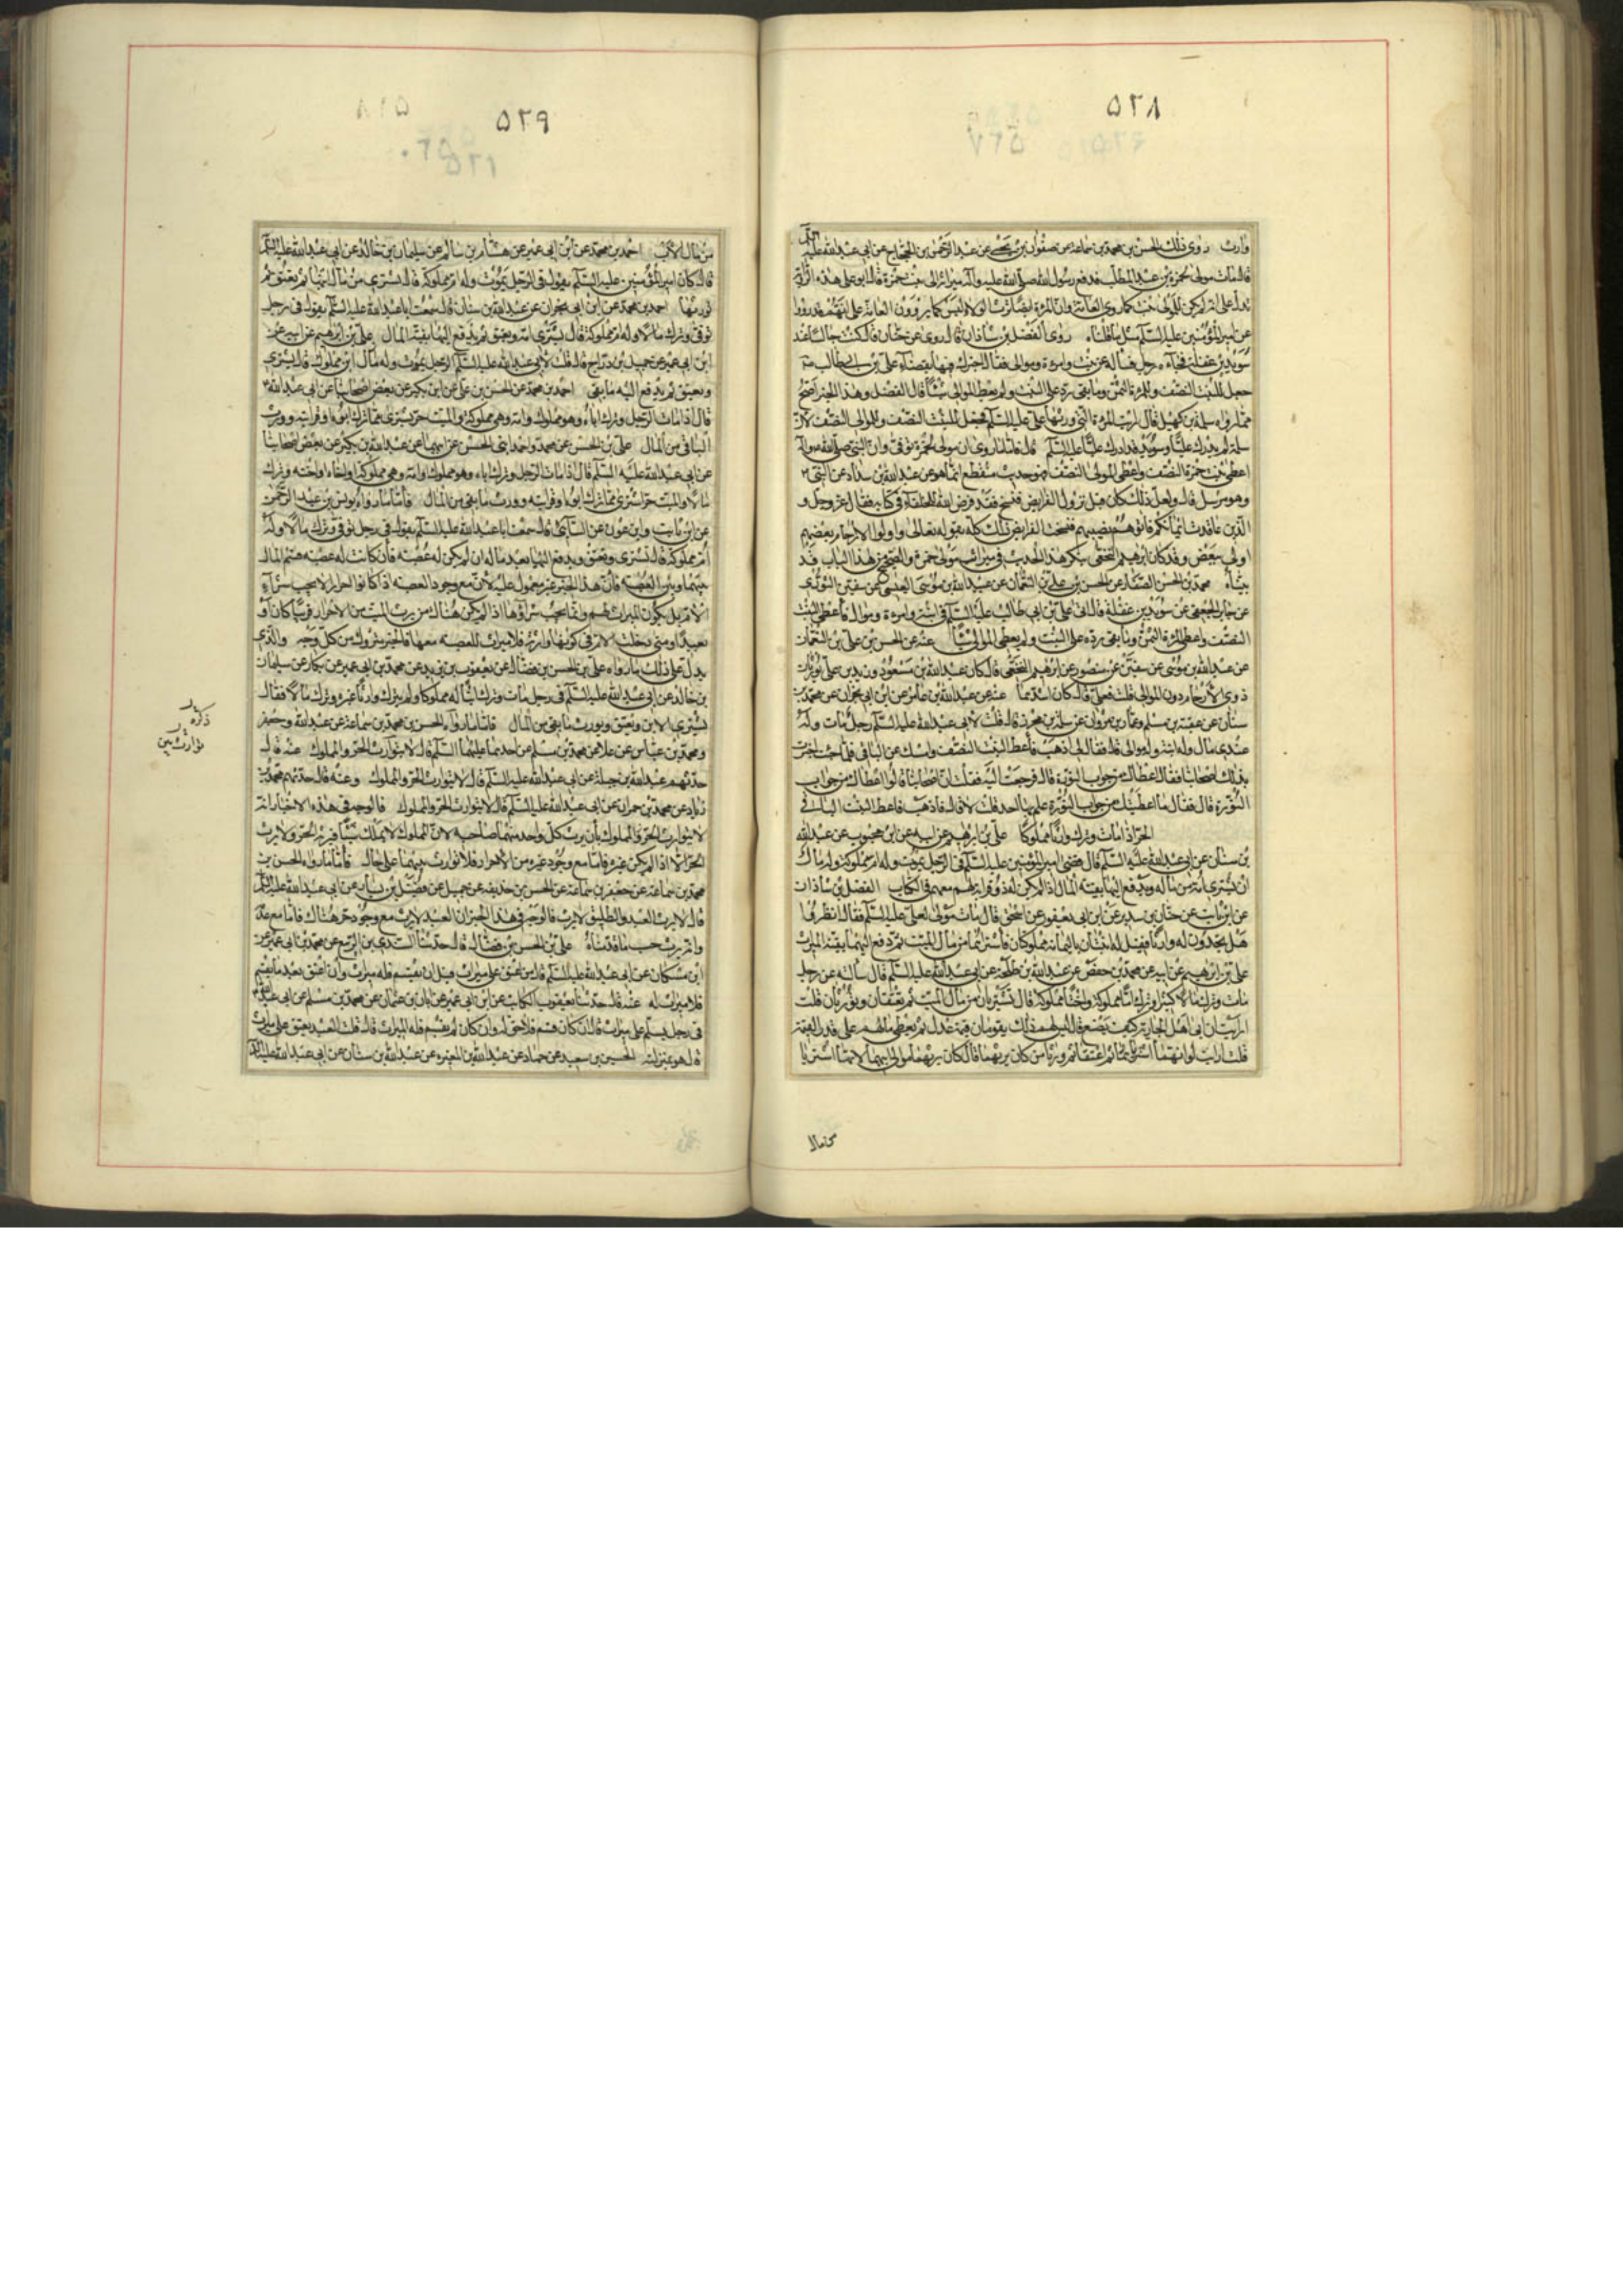 ٥٢٨
وارث روى ذلك الحسن بن محمد بن سماعة عن صفوان بن يحيى عن عبد الرحمن بن الحجاج عن ابى عبد الله عليه السلم
قال مات مولى لحمزة بن عبد المطلب فدفع رسول الله صلى الله عليه وآله ميراثه الى بنت حمزة قال ابو على هذه الرواية
تدل على انه لم يكن للمولى بنت كما روى العامة وان المرأة ايضا ترث الولاء ليس كما يروون العامة
عن امير المؤمنين عليه السلم مثل ما قلناه روى الفضل بن شاذان قال روى عن حنان قال كنت جالسا عند
سويد بن غفلة فجاءه رجل فساله عن بنت وامرءة وموالى فقال اخبرك فيها بقضاء على بن ابى طالب
جعل للبنت النصف وللمرءة الثمن وما بقى رد على البنت ولم يعط الموالى شيئا قال الفضل وهذا الخبر اصح
مما رواه سلمة بن كهيل قال رايت المرءة التى ورثها على عليه السلم فجعل للبنت النصف وللموالى النصف لان
سلمة لم يدرك عليا وسويد قد ادرك عليا عليه السلم قال فاما ما روى ان مولى لحمزة توفى وان النبى صلى الله عليه وآله
اعطى بنت حمزة النصف واعطى المولى النصف فهو حديث منقطع انما هو عن عبد الله بن شداد عن النبى
وهو مرسل قال ولعل ذلك كان قبل نزول الفرايض فنسخ فقد فرض الله للحلفاء فى كتابه فقال عز وجل و
الذين عاقدت ايمانكم فاتوهم نصيبهم فنسخت الفرايض ذلك كله بقوله تعالى واولوا الارحام بعضهم
اولى ببعض وقد كان ابرهيم النخعى ينكر هذا الحديث فى ميراث مولى حمزة والصحيح من هذا الباب قد
بيناه محمد بن الحسن الصفار عن الحسن بن على بن النعمان عن عبيد الله بن موسى العبسى عن سفين الثورى
عن جابر الجعفى عن سويد بن غفلة قال اتى على بن ابى طالب عليه السلم فى ابنة وامرءة وموال فاعطى البنت
النصف واعطى المرءة الثمن وما بقى رده على البنت ولم يعطى الموالى شيئا عنه عن الحسن بن على بن النعمان
عن عبد الله بن موسى عن سفين عن منصور عن ابرهيم النخعى قال كان عبد الله بن مسعود وزيد بن على يورثان
ذوى الارحام دون الموالى قلت فعلى قال كان اشدهما عنه عن عبد الله بن عامر عن ابن ابى نجران عن محمد بن
سنان عن عقبة بن مسلم وعمار بن مروان عن سلمة بن محرز قال قلت لابى عبد الله عليه السلم رجل مات وله
عندى مال وله ابنة وله موالى قال فقال لى اذهب فاعط البنت النصف وامسك عن الباقى فلما جئت اخبرت
بذلك اصحابنا فقالوا اعطاك من جراب النورة قال فرجعت اليه فقلت ان اصحابنا قالوا اعطاك من جراب
النورة قال فقال ما اعطيتك من جراب النورة علم بهذا احد قلت لا قال فاذهب فاعط البنت الباقى
الحر اذا مات وترك وارثا مملوكا على بن ابرهيم عن ابيه عن ابن محبوب عن عبد الله
بن سنان عن ابى عبد الله عليه السلم قال قضى امير المؤمنين عليه السلم فى الرجل يموت وله ام مملوكة وله مال
ان تشترى امه من ماله ويدفع اليها بقية المال اذا لم يكن له ذو قرابة لهم سهم فى الكتاب الفضل بن شاذان
عن ابن ثابت عن حنان بن سدير عن ابن ابى يعفور عن اسحق قال مات مولى لعلى عليه السلم فقال انظروا
هل تجدون له وارثا فقيل له ابنتان باليمامة مملوكتان فاشتراهما من مال الميت ثم دفع اليهما بقية الميراث
على بن ابرهيم عن ابيه عن محمد بن حفص عن عبد الله بن طلحة عن ابى عبد الله عليه السلم قال سالته عن رجل
مات وترك مالا كثيرا وترك اما مملوكة واختا مملوكة قال تشتريان من مال الميت ثم تعتقان وتورثان قلت
ارايت ان ابى اهل الجارية كيف يصنع قال ليس لهم ذلك يقومان قيمة عدل ثم يعطى مالهم على قدر القيمة
قلت ارايت لو انهما اشتريا ثم اعتقا ثم ورثا من كان يرثهما قال كان يرثهما موالى ابيهما لانهما اشتريا
من مال
٥٢٩
من مال الاب احمد بن محمد عن ابن ابى عمير عن هشام بن سالم عن سليمان بن خالد عن ابى عبد الله عليه السلم
قال كان امير المؤمنين عليه السلم يقول فى الرجل يموت وله ام مملوكة قال تشترى من مال ابنها ثم تعتق ثم
تورثها احمد بن محمد عن ابن ابى نجران عن عبد الله بن سنان قال سمعت ابا عبد الله عليه السلم يقول فى رجل
توفى وترك مالا وله ام مملوكة قال يشترى امه وتعتق ثم يدفع اليها بقية المال على بن ابرهيم عن ابيه عن
ابن ابى عمير عن جميل بن دراج قال قلت لابى عبد الله عليه السلم الرجل يموت وله مال ابن مملوك قال يشترى
ويعتق ثم يدفع اليه ما بقى احمد بن محمد عن الحسن بن على عن ابن بكير عن بعض اصحابنا عن ابى عبد الله
قال اذا مات الرجل وترك اباه وهو مملوك وامه وهى مملوكة والميت حر يشترى مما ترك ابوه او قرابته وورث
الباقى من المال على بن الحسن عن محمد واحمد ابنى الحسن عن ابيهما عن عبد الله بن بكير عن بعض اصحابنا
عن ابى عبد الله عليه السلم قال اذا مات الرجل وترك اباه وهو مملوك وامه وهى مملوكة واخاه او اخته وترك
مالا والميت حر اشترى مما ترك ابوه او قرابته وورث ما بقى من المال فاما ما رواه يونس بن عبد الرحمن
عن ابن ثابت وابن عون عن السائى قال سمعت ابا عبد الله عليه السلم يقول فى رجل توفى وترك مالا وله
ام مملوكة قال تشترى وتعتق ويدفع اليها بعد ماله ان لم يكن له عصبة فان كانت له عصبة قسم المال
بينها وبين العصبة فان هذا الخبر غير معمول عليه لانه مع وجود العصبة اذا كانوا احرارا لا يجب شراء
الام بل يكون الميراث لهم وانما يجب شراؤها اذا لم يكن هناك من يرث الميت من الاحرار قريبا كان او
بعيدا ومتى دخلت الام فى كونها وارثة فلا ميراث للعصبة معها فالخبر متروك من كل وجه والذى
يدل على ذلك ما رواه على بن الحسن بن فضال عن يعقوب بن يزيد عن محمد بن ابى عمير عن بكار عن سليمان
بن خالد عن ابى عبد الله عليه السلم فى رجل مات وترك ابنا له مملوكا ولم يترك وارثا غيره وترك مالا فقال
يشترى الابن ويعتق ويورث ما بقى من المال فاما ما رواه الحسن بن محمد بن سماعة عن عبد الله وجعفر
ومحمد بن عباس عن علاء عن محمد بن مسلم عن احدهما عليهما السلم قال لا يتوارث الحر والمملوك عنه قال
حدثهم عبد الله بن جبلة عن ابى عبد الله عليه السلم قال لا يتوارث الحر والمملوك وعنه قال حدثهم محمد بن
زياد عن محمد بن حمران عن ابى عبد الله عليه السلم قال لا يتوارث الحر والمملوك فالوجه فى هذه الاخبار انه
لا يتوارث الحر والمملوك بان يرث كل واحد منهما صاحبه لان المملوك لا يملك شيئا فيرثه الحر ولا يرث
الحر الا اذا لم يكن غيره فاما مع وجود غيره من الاحرار فلا توارث بينهما على حال فاما ما رواه الحسن بن
محمد بن سماعة عن جعفر بن سماعة عن الحسن بن حذيفة عن جميل عن فضيل بن يسار عن ابى عبد الله عليه السلم
قال لا يرث العبد والطليق لا يرث فالوجه فى هذا الخبر ان العبد لا يرث مع وجود حر هناك فاما مع عدمه
وانه يرث حسب ما قدمناه على بن الحسن بن فضال قال حدثنا السندى بن الربيع عن محمد بن ابى عمير عن
ابن مسكان عن ابى عبد الله عليه السلم قال من اعتق على ميراث قبل ان يقسم فله ميراث وان اعتق بعد ما يقسم
فلا ميراث له عنه قال حدثنا يعقوب الكاتب عن ابن ابى عمير عن ابان بن عثمان عن محمد بن مسلم عن ابى عبد الله
فى رجل يسلم على ميراث قال ان كان قسم فلا حق له وان كان لم يقسم فله الميراث قال قلت العبد يعتق على ميراث
قال هو بمنزلته الحسين بن سعيد عن حماد عن عبد الله بن المغيرة عن عبد الله بن سنان عن ابى عبد الله عليه السلم